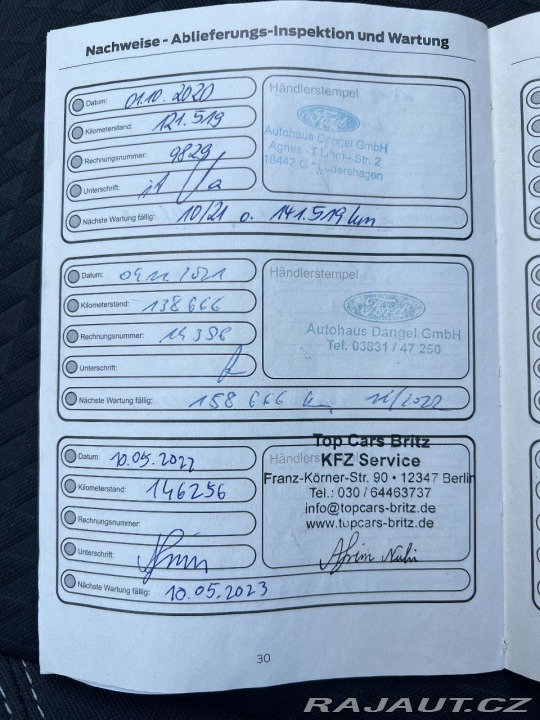 Nachweise - Ablieferungs-Inspektion und Wartung
Datum: 01.10.2020
Kilometerstand: 121.519
Rechnungsnummer: 9829
Unterschrift:
Nächste Wartung fällig: 10/21 o. 141.519 km
Händlerstempel
Ford
Autohaus Dangel GmbH
Str. 2
18442
Datum:
Kilometerstand: 138666
Rechnungsnummer: 14356
Unterschrift:
Nächste Wartung fällig: 158 666 km 11/2022
Händlerstempel
Ford
Autohaus Dangel GmbH
Tel. 03831 / 47 250
Datum: 10.05.2022
Kilometerstand: 146256
Rechnungsnummer:
Unterschrift:
Nächste Wartung fällig: 10.05.2023
Top Cars Britz
KFZ Service
Franz-Körner-Str. 90 • 12347 Berlin
Tel.: 030 / 64463737
info@topcars-britz.de
www.topcars-britz.de
30
RAJAUT.CZ